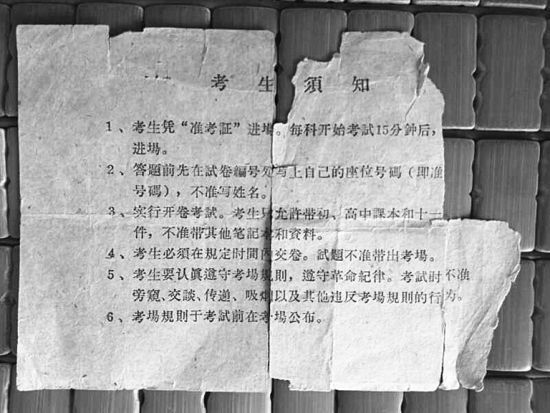 考生須知
1、考生凭“准考証”进場。每科开始考試15分鈡后，
进場。
2、答題前先在試卷編号处写上自己的座位号碼（即准
号碼），不准写姓名。
3、实行开卷考試。考生只允許带初、高中課本和十一
件，不准带其他笔記本和資料。
4、考生必須在規定时間內交卷。試題不准带出考場。
5、考生要认眞遵守考場規則，遵守革命紀律。考試时不准
旁窺、交談、传递、吸烟以及其他违反考場規則的行为。
6、考場規則于考試前在考場公布。